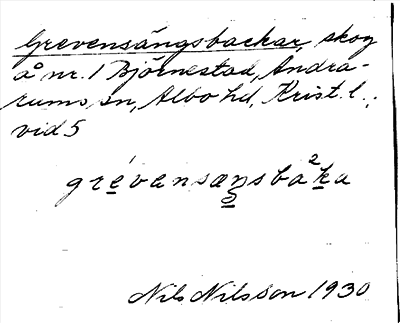 Grevensängsbackar, skog
å nr. 1 Björnestad, Andra-
rums sn, Albo hd, Krist. l.;
vid 5
grévansæŋsba²ka
Nils Nilsson 1930